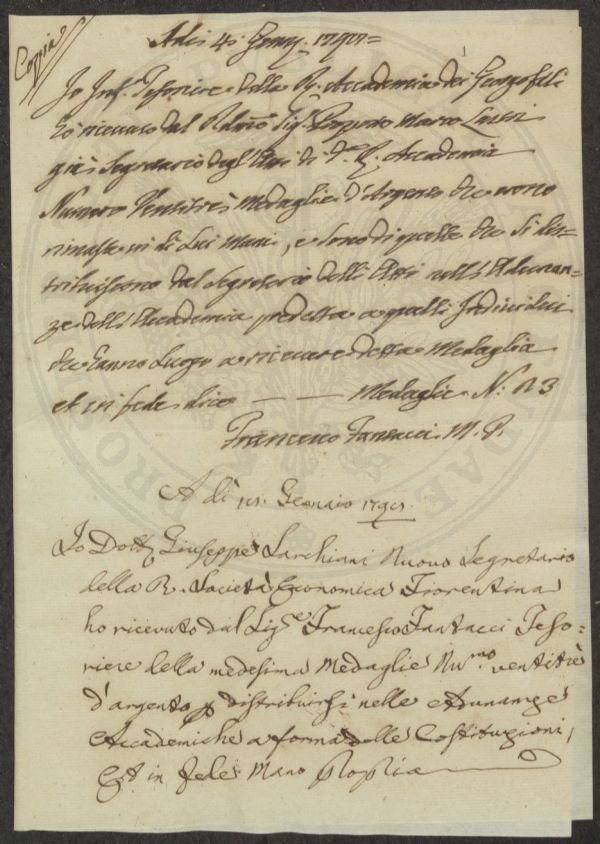 Copia
Adì 4: Genn: 1797=
1
Io Inf.º Tesoriere della R. Accademia dei Georgofili
hò ricevuto dal Sig.
già Segretario degl'Atti di d.ª R. Accademia
Numero Ventitrè Medaglie d'Argento che erono
rimaste in di Lui Mani, e sono di quelle che si dis=
tribuiscono dal Segretario delli Atti nell'Adunan=
ze dell'Accademia predetta a quelli Individui
che hanno Luogo a ricevere detta Medaglia
et in fede dico — — Medaglie N: 23
Francesco Fantacci M. P.
A dì Gennaio 1797.
Io Dott. Giuseppe Sarchiani Nuovo Segretario
della R. Società Economica Fiorentina
ho ricevuto dal Sig.re Francesco Fantacci Teso=
riere della medesima Medaglie Nu.mo ventitrè
d'argento p distribuirsi nelle Adunanze
Accademiche a forma delle Costituzioni,
Et in fede Mano Propria